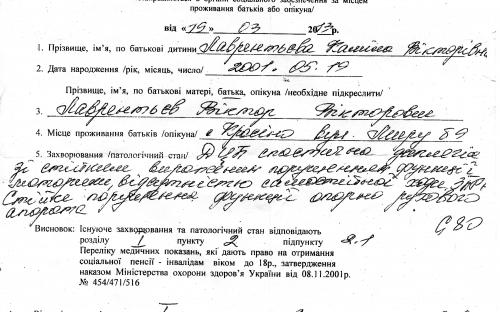 проживання батьків або опікуна/
від «19» 03 2013р.
1. Прізвище, ім'я, по батькові дитини Лаврентьєва Каміла Вікторівна
2. Дата народження /рік, місяць, число/ 2001. 05. 19
Прізвище, ім'я, по батькові матері, батька, опікуна /необхідне підкреслити/
3. Лаврентьєв Віктор Вікторович
4. Місце проживання батьків /опікуна/ вул. Миру 69
5. Захворювання /патологічний стан/ ДЦП спастична диплегія
зі стійким вираженим порушенням функції
моторики, відсутністю самостійної ходи,
Стійке порушення функції опорно рухового
апарата G 80
Висновок: Існуюче захворювання та патологічний стан відповідають
розділу I пункту 2 підпункту 2.1
Переліку медичних показань, які дають право на отримання
соціальної пенсії - інвалідам віком до 18р., затвердження
наказом Міністерства охорони здоров'я України від 08.11.2001р.
№ 454/471/516